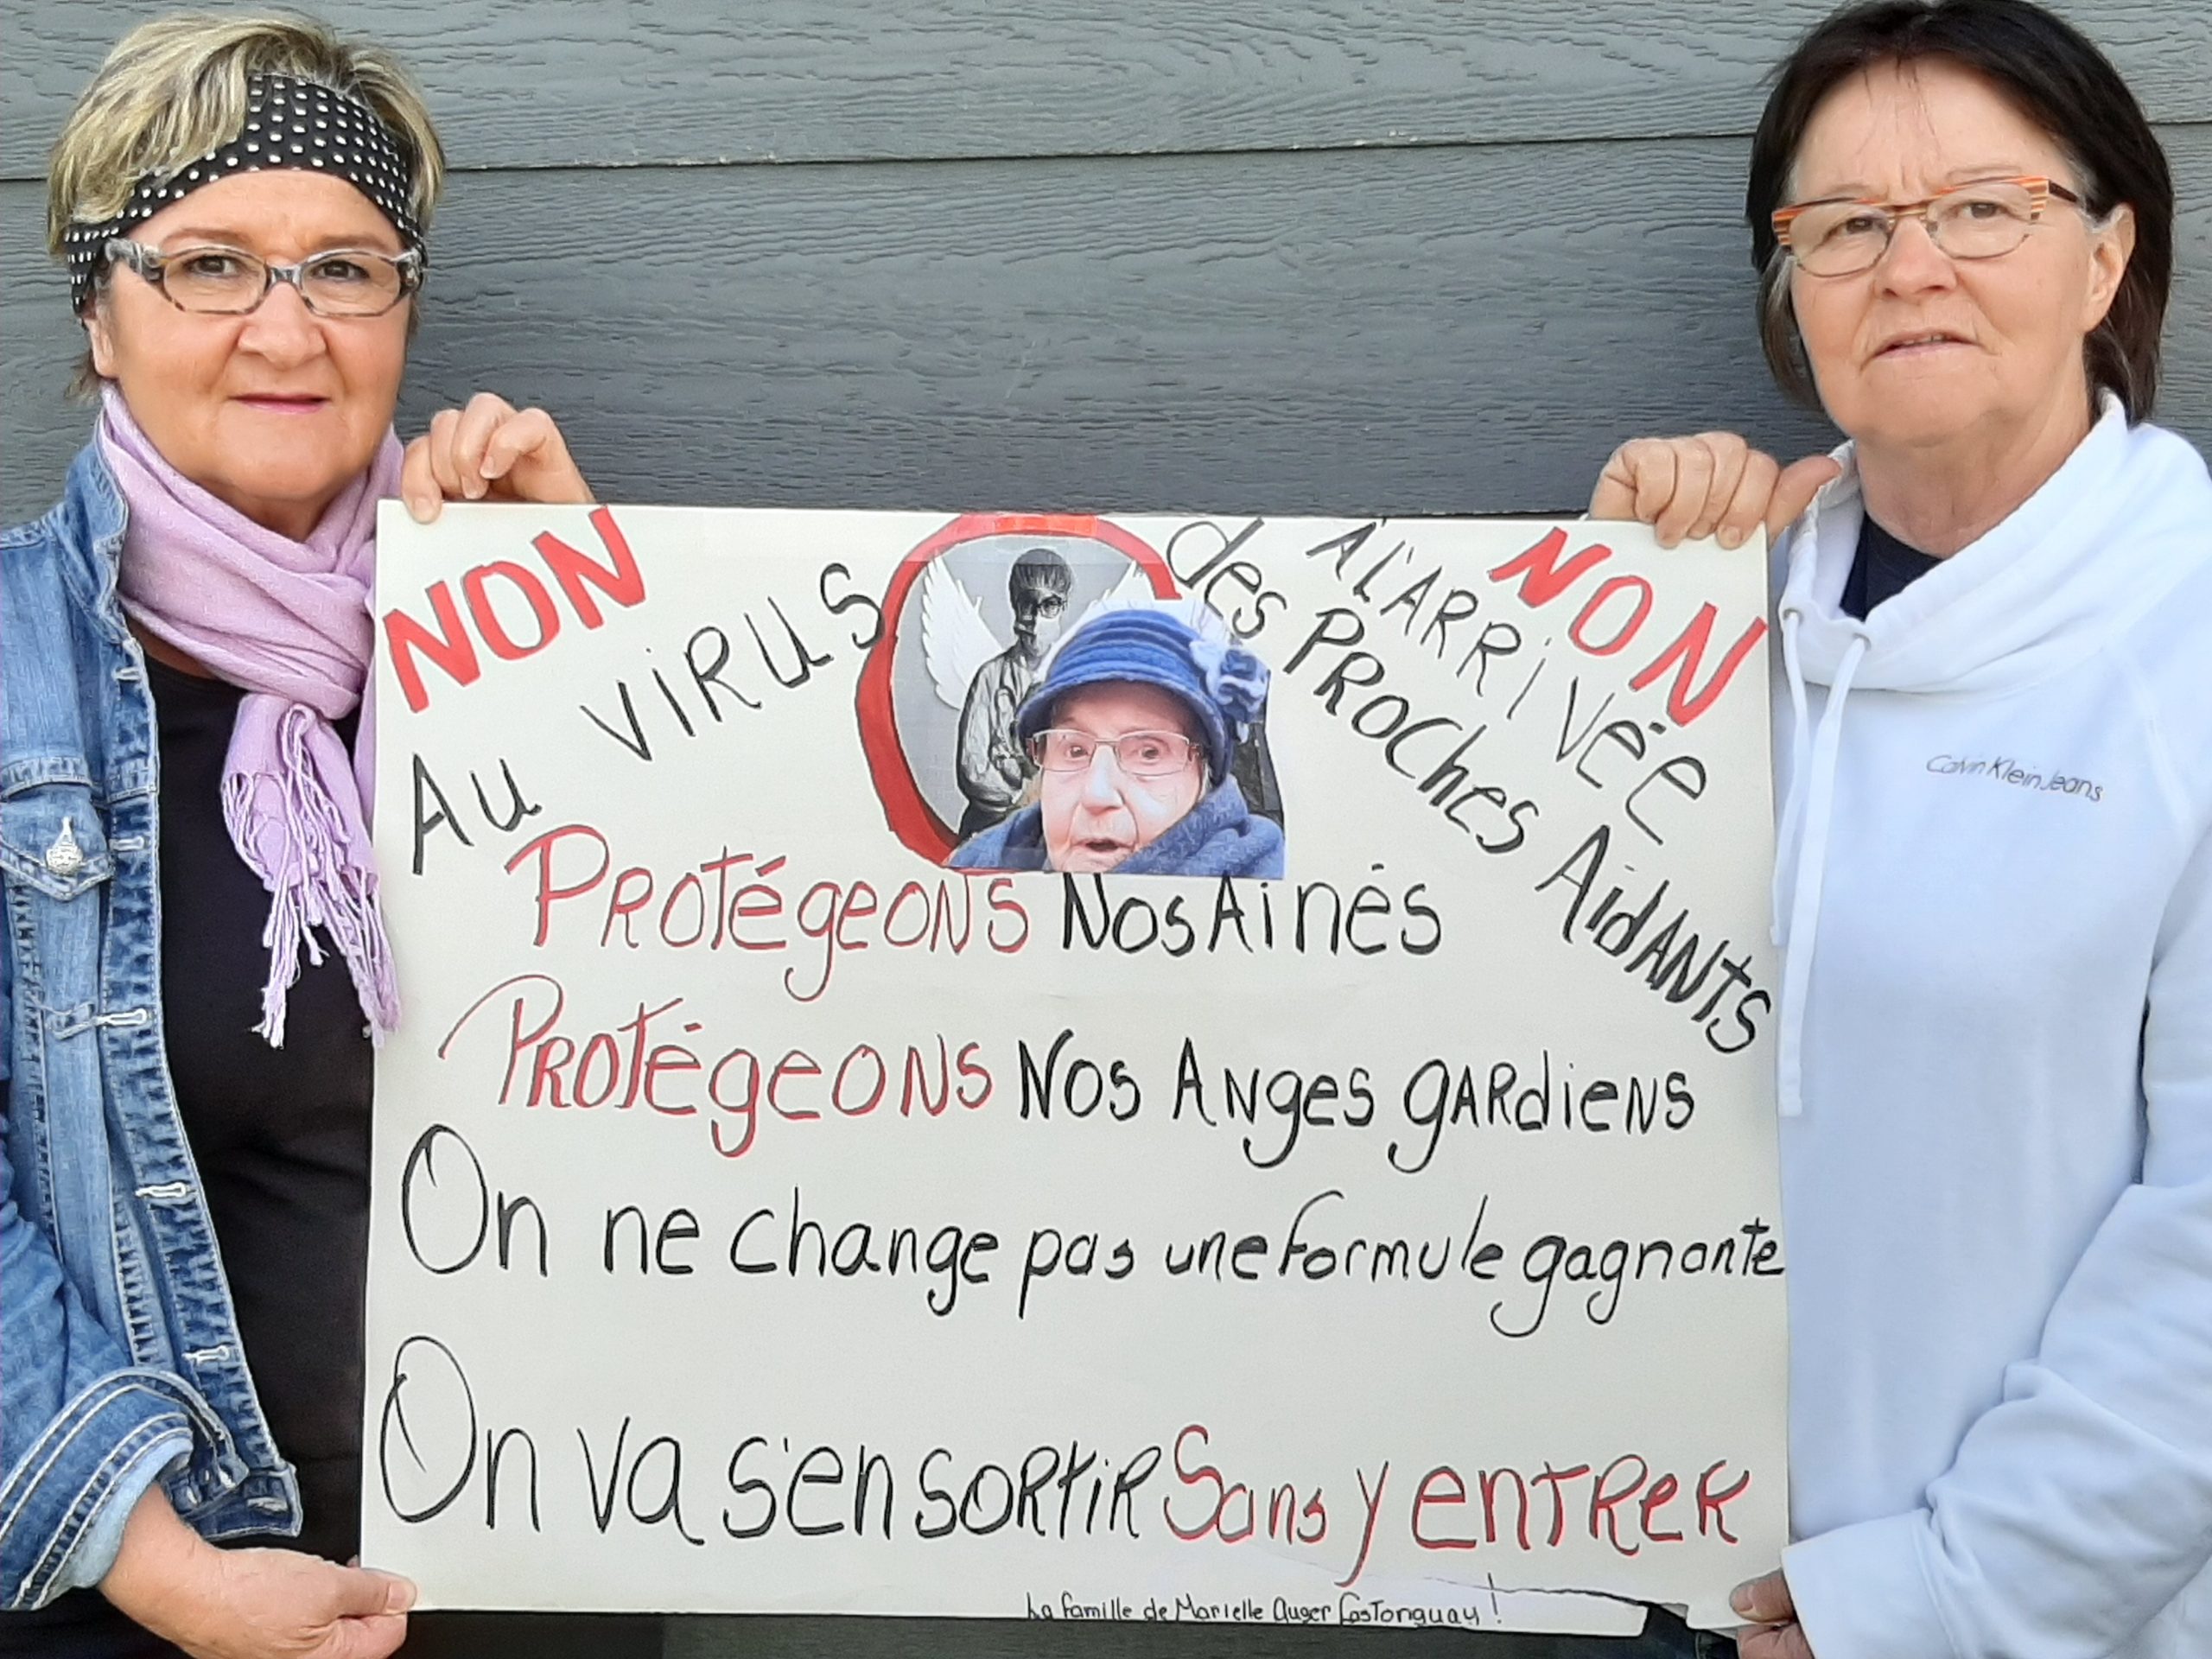 NON
Au VIRUS
NON
À L'ARRIVÉE
des PROCHES AidANTS
PROTÉGEONS NOS AINÉS
PROTÉGEONS NOS ANGES GARDIENS
On ne change pas une formule gagnante
On va s'en sortir Sans y entrer
La famille de Marielle Auger Castonguay !
Calvin Klein Jeans